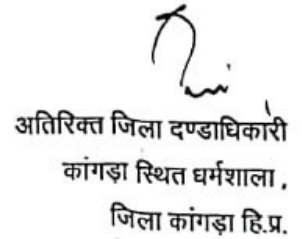 अतिरिक्त जिला दण्डाधिकारी
कांगड़ा स्थित धर्मशाला,
जिला कांगड़ा हि.प्र.